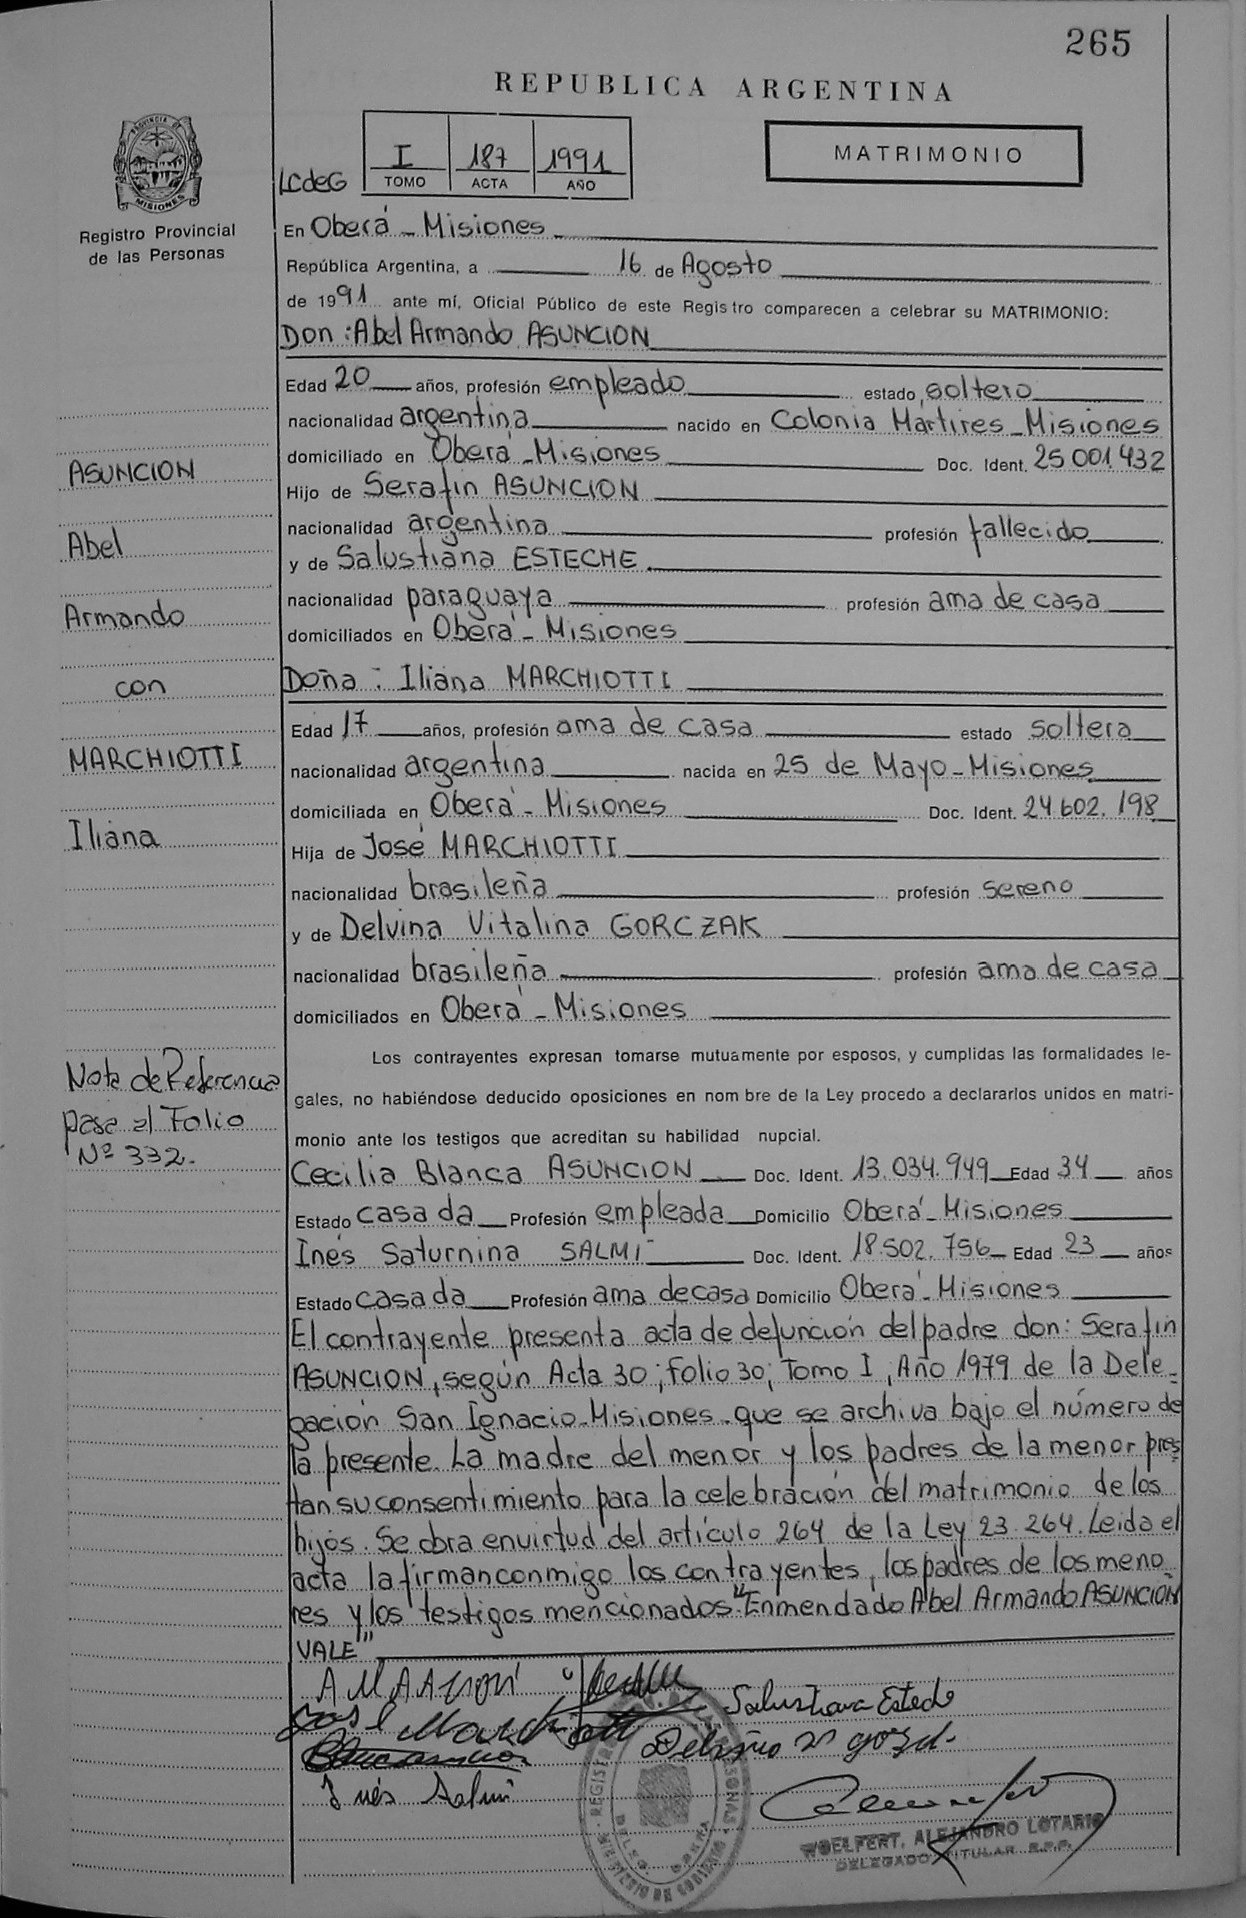 265
REPUBLICA ARGENTINA
PROVINCIA DE
MISIONES
Registro Provincial
de las Personas
I 187 1991
LCdeG TOMO ACTA AÑO
MATRIMONIO
En Oberá - Misiones
República Argentina, a 16 de Agosto
de 1991 ante mí, Oficial Público de este Registro comparecen a celebrar su MATRIMONIO:
Don : Abel Armando ASUNCION
Edad 20 años, profesión empleado estado soltero
nacionalidad argentina nacido en Colonia Mártires - Misiones
domiciliado en Oberá - Misiones Doc. Ident. 25.001.432
Hijo de Serafín ASUNCION
nacionalidad argentina profesión fallecido
y de Salustiana ESTECHE
nacionalidad paraguaya profesión ama de casa
domiciliados en Oberá - Misiones
Doña : Iliana MARCHIOTTI
Edad 17 años, profesión ama de casa estado soltera
nacionalidad argentina nacida en 25 de Mayo - Misiones
domiciliada en Oberá - Misiones Doc. Ident. 24.602.198
Hija de José MARCHIOTTI
nacionalidad brasileña profesión sereno
y de Delvina Vitalina GORCZAK
nacionalidad brasileña profesión ama de casa
domiciliados en Oberá - Misiones
Los contrayentes expresan tomarse mutuamente por esposos, y cumplidas las formalidades le-
gales, no habiéndose deducido oposiciones en nombre de la Ley procedo a declararlos unidos en matri-
monio ante los testigos que acreditan su habilidad nupcial.
Cecilia Blanca ASUNCION Doc. Ident. 13.034.949 Edad 34 años
Estado casada Profesión empleada Domicilio Oberá - Misiones
Inés Saturnina SALMI Doc. Ident. 18.502.756 Edad 23 años
Estado casada Profesión ama de casa Domicilio Oberá - Misiones
El contrayente presenta acta de defunción del padre don: Serafín
ASUNCION, según Acta 30; Folio 30; Tomo I; Año 1979 de la Dele-
gación San Ignacio - Misiones - que se archiva bajo el número de
la presente. La madre del menor y los padres de la menor pres
tan su consentimiento para la celebración del matrimonio de los
hijos. Se obra en virtud del artículo 264 de la Ley 23.264. Leída el
acta la firman conmigo los contrayentes, los padres de los meno-
res y los testigos mencionados. "Enmendado Abel Armando ASUNCION
VALE"
ASUNCION
Abel
Armando
con
MARCHIOTTI
Iliana
Nota de Referencia
pase al Folio
Nº 332.-
Salustiana Esteche
Inés Salmi
WOELFERT, ALEJANDRO LOTARIO
DELEGADO TITULAR R.P.P.